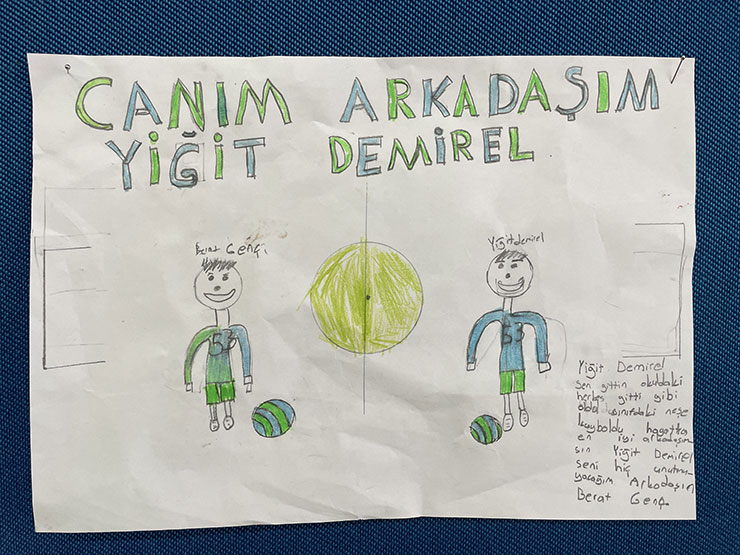 CANIM ARKADAŞIM
YİĞİT DEMİREL
Berat Gençi
Yiğitdemirel
53
53
Yiğit Demirel
sen gittin okuldaki
herkes gitti gibi
oldu sınıftaki neşe
kayboldu hayatta
en iyi arkadaşım
sın Yiğit Demirel
seni hiç unutma
yacağım Arkadaşın
Berat Genç